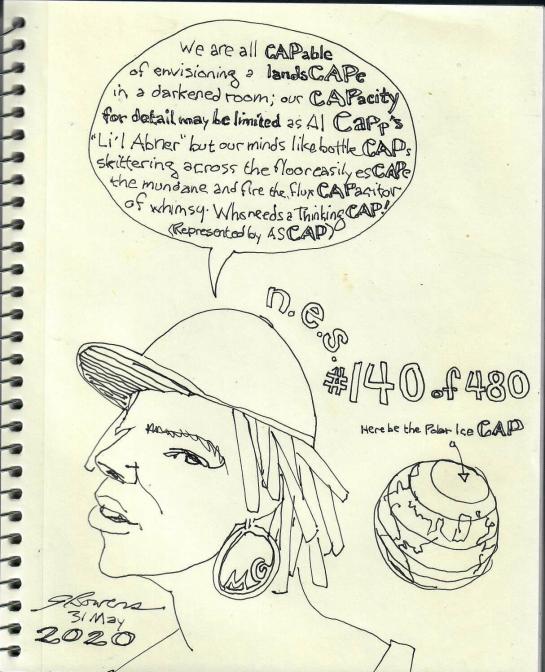 We are all CAPable
of envisioning a landsCAPe
in a darkened room; our CAPacity
for detail may be limited as Al CaPP's
"Li'l Abner" but our minds like bottle CAPs
skittering across the floor easily esCAPe
the mundane and fire the flux CAPacitor
of whimsy. Who needs a Thinking CAP!
(Represented by ASCAP)
n.e.s.
#140 of 480
Here be the Polar Ice CAP
SBowers
31 May
2020